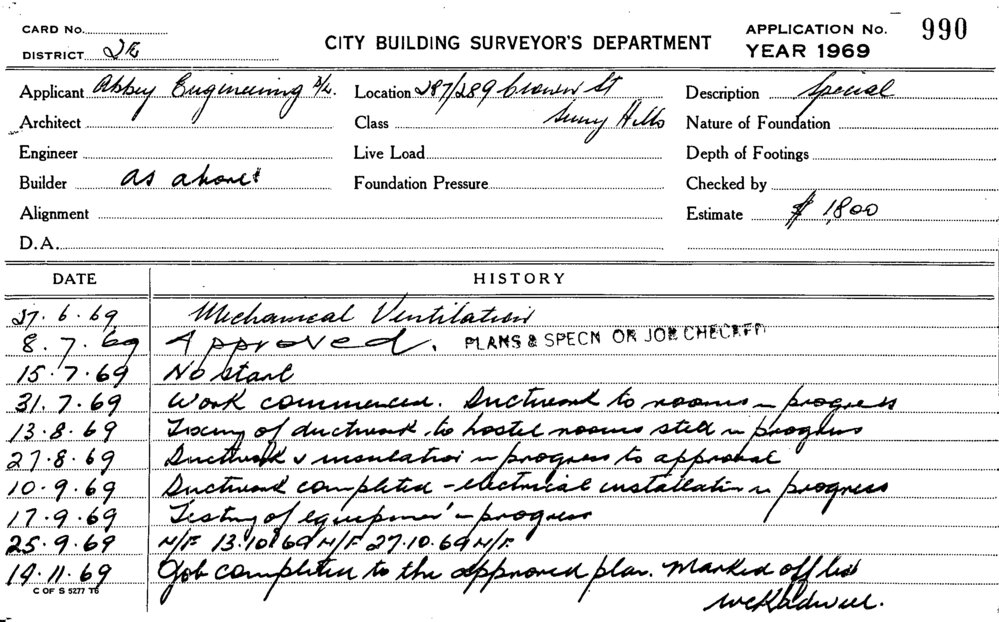 CARD No.
DISTRICT 2E
CITY BUILDING SURVEYOR'S DEPARTMENT
APPLICATION No. 990
YEAR 1969
Applicant Abbey Engineering P/L. Location 287/289 Crown St Description Special
Architect Class Surry Hills Nature of Foundation
Engineer Live Load Depth of Footings
Builder As above Foundation Pressure Checked by
Alignment Estimate $ 1,800
D.A.
DATE HISTORY
27.6.69 Mechanical Ventilation
8.7.69 Approved. PLANS & SPECN OR JOB CHECKED
15.7.69 No start
31.7.69 Work commenced. Ductwork to rooms in progress
13.8.69 Fixing of ductwork to hostel rooms still in progress
27.8.69 Ductwork & insulation in progress to approval
10.9.69 Ductwork completed - electrical installation in progress
17.9.69 Testing of equipmen' in progress
25.9.69 N/F 13.10.69 N/F 27.10.69 N/F.
19.11.69 Job completed to the approved plan. Marked off list
C OF S 5277 T6